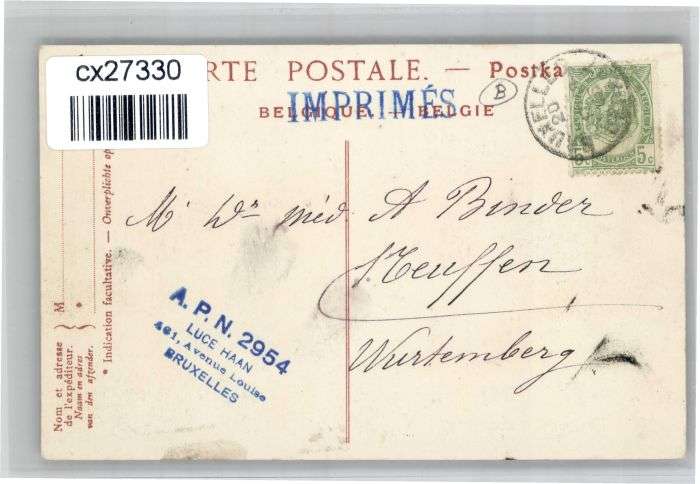 cx27330
RTE POSTALE. — Postka
BELGIQUE. — BELGIE
IMPRIMÉS
B
5c 5c
Mr Dr méd. A Binder
Neuffen
Wurtemberg
A. P. N. 2954
LUCE HAAN
461, Avenue Louise
BRUXELLES
* Indication facultative. — Onverplichte op
M
*
Nom et adresse
de l'expéditeur.
Naam en adres
van den afzender.